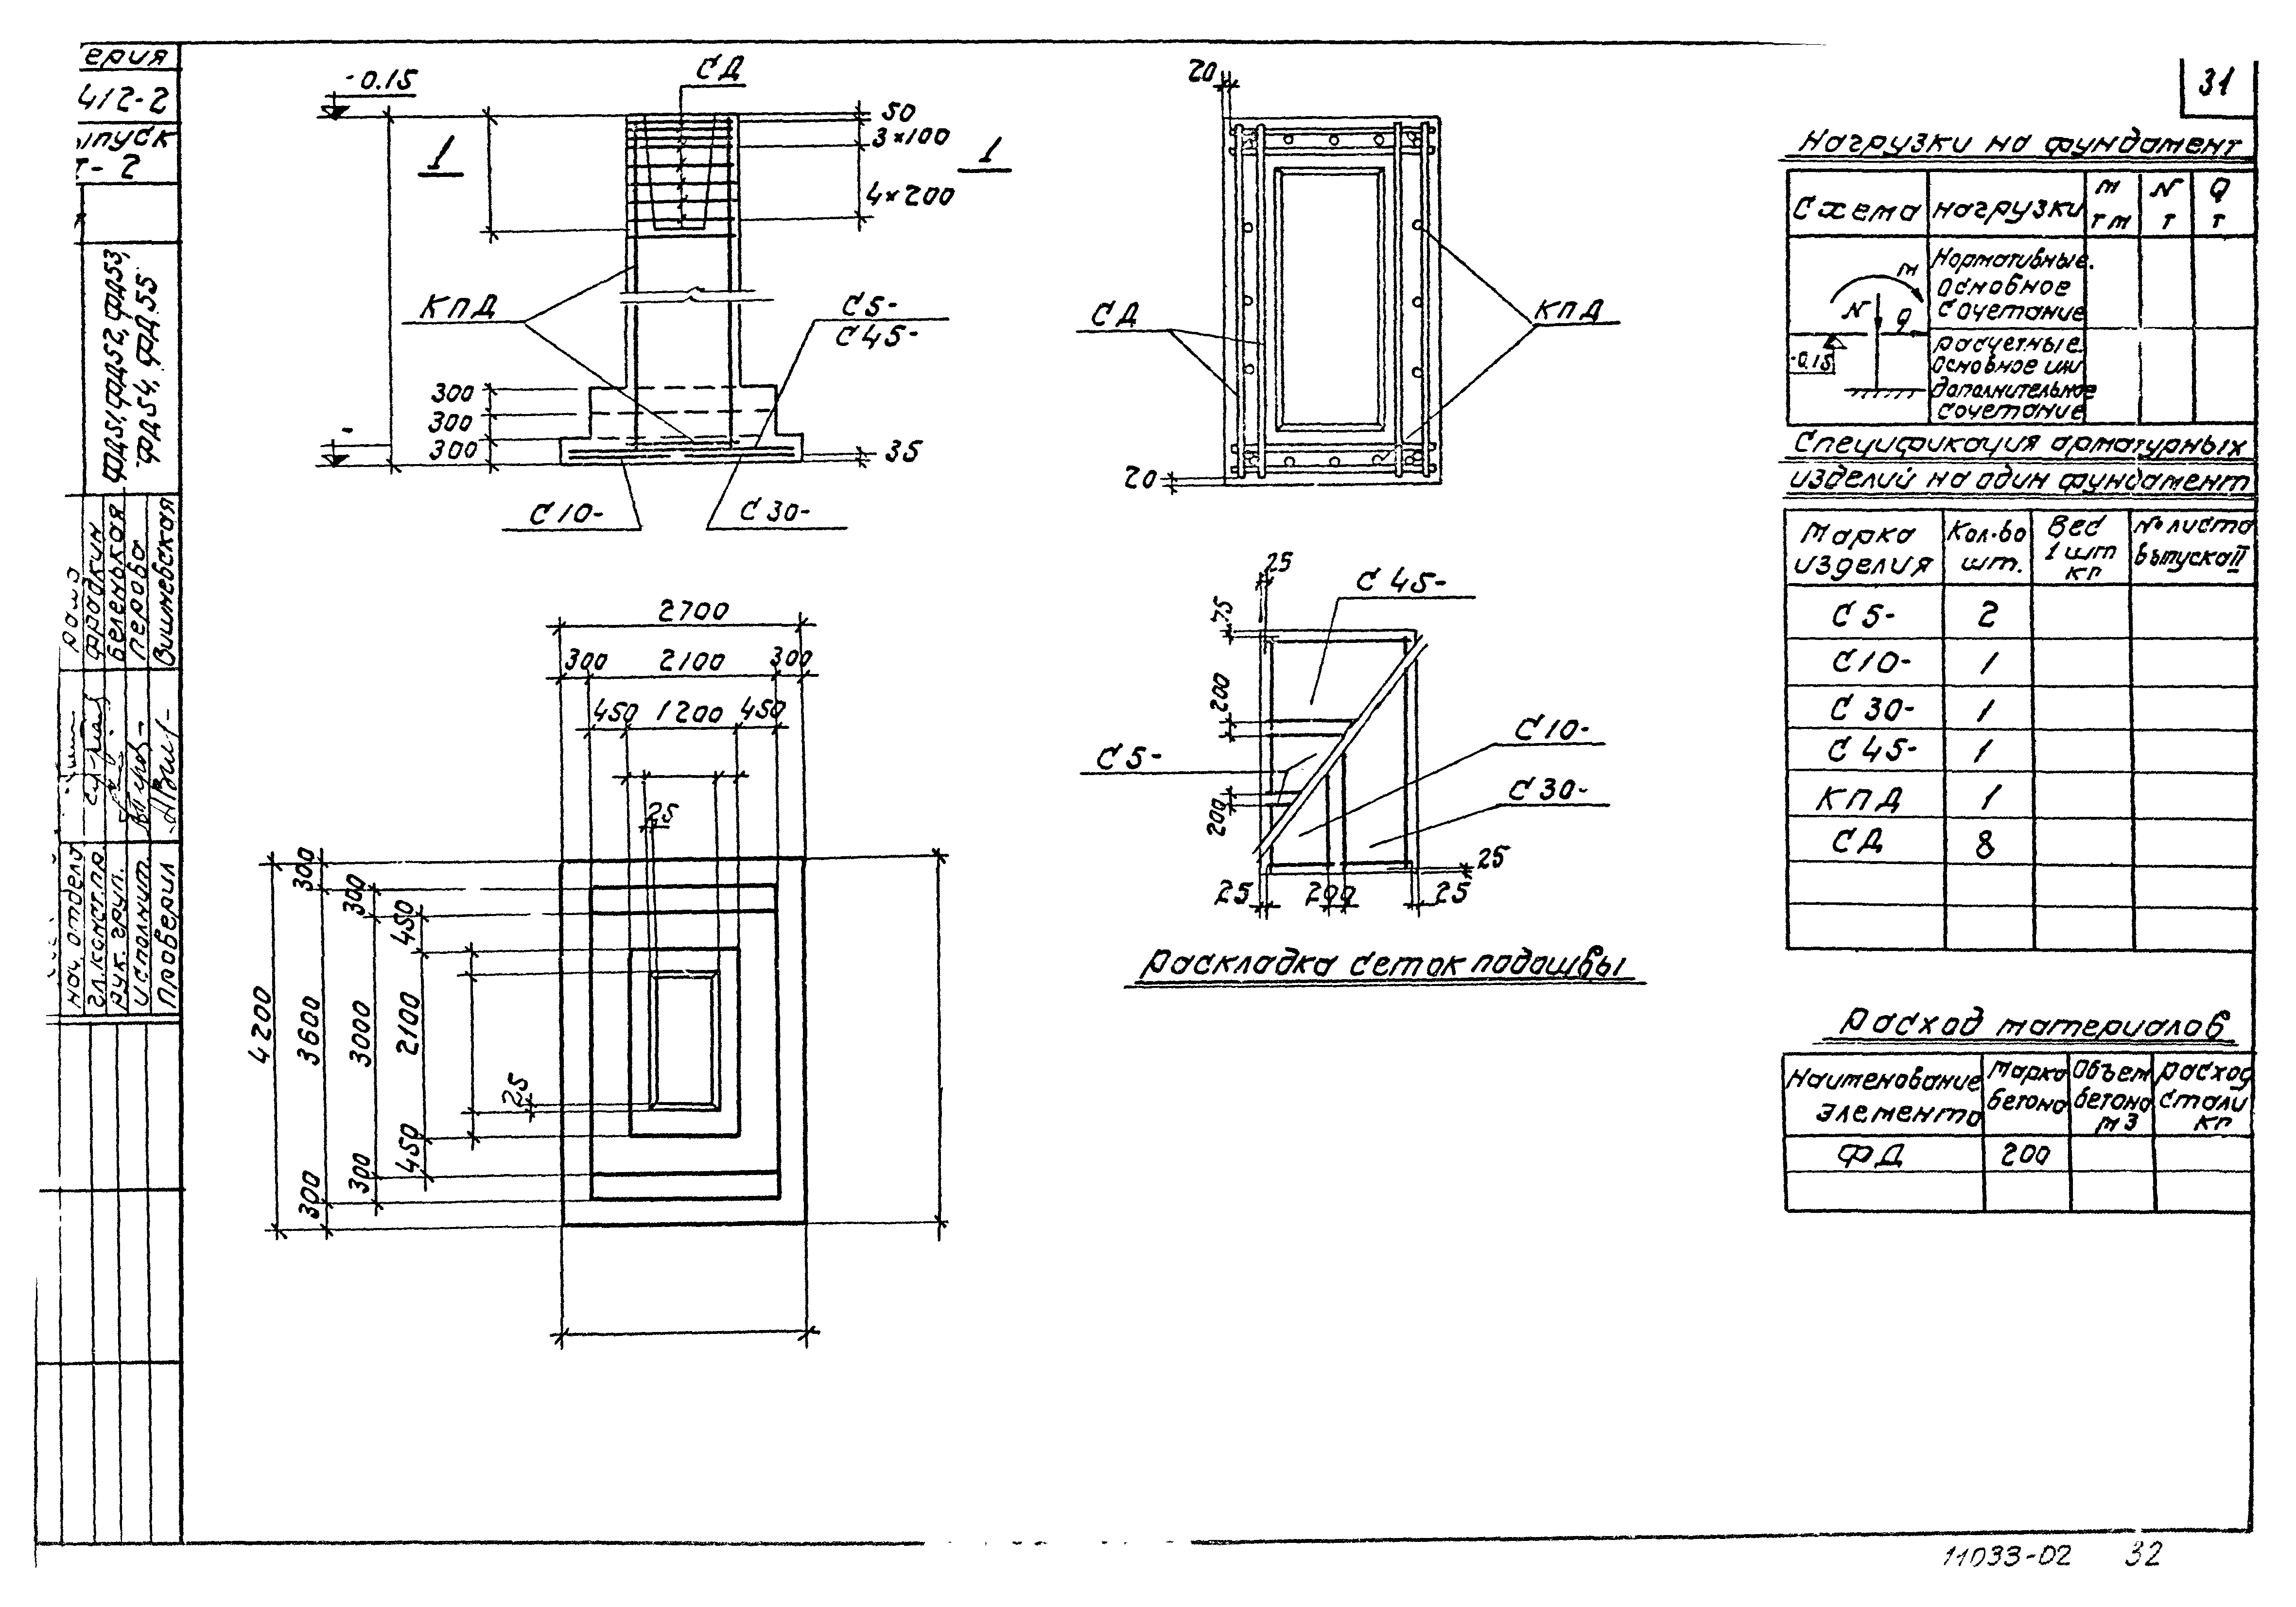 ерия
412-2
ыпуск
т-2
ФД51, ФД52, ФД53,
ФД54, ФД55
нач. отдела
гл.констр.
рук. груп.
исполнит.
проверил
Фрадкин
беленькая
перова
Вишневская
СД
-0.15
50
3×100
1
1
4×200
КПД
С5-
С45-
300
300
300
35
С10-
С30-
20
СД
КПД
20
2700
300
2100
300
450
1200
450
25
300
300
450
4200
3600
3000
2100
25
450
300
300
25
С 45-
75
200
С 5-
200
С 10-
С 30-
25
25
200
25
Раскладка сеток подошвы
31
Нагрузки на фундамент
Схема
нагрузки
м
тм
N
т
Q
т
м
N
Q
-0.15
Нормативные.
Основное
сочетание
расчетные.
Основное или
дополнительное
сочетание
Спецификация арматурных
изделий на один фундамент
Марка
изделия
Кол-во
шт.
Вес
1 шт
кг
№ листа
выпуска II
С 5-
2
С 10-
1
С 30-
1
С 45-
1
КПД
1
СД
8
Расход материалов
Наименование
элемента
Марка
бетона
Объем
бетона
м3
расход
стали
кг
ФД
200
11033-02
32